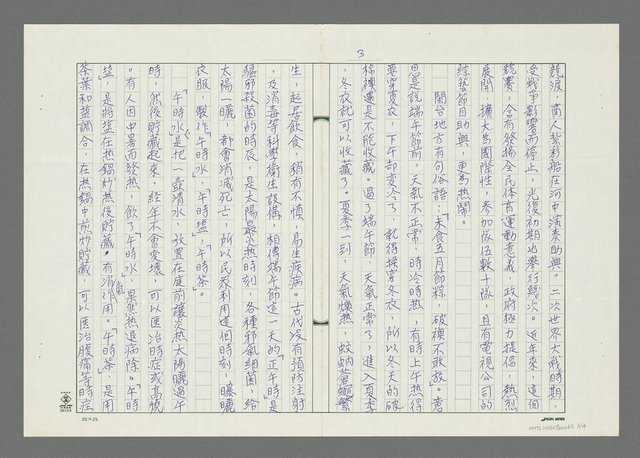 3
競渡，商人紮彩船在河中演奏助興。二次世界大戰時期，
受戰爭影響而停止，光復初期也舉行幾次。近年來，這個
競賽，含有發揚全民体育運動意義，政府極力提倡，熱烈
展開，擴大為國際性，參加隊伍數十隊，且有電視公司的
綜藝節目助興，更為熱鬧。
閩台地方有句俗語：「未食五月節粽，破襖不敢放。」意
思是說端午節前，天氣不正常，時冷時熱，有時上午熱得
要穿夏衣，下午却變冷了，就得換穿冬衣，所以冬天的破
棉襖還是不能收藏。過了端午節，天氣正常了，進入夏季
，冬衣就可以收藏了。夏季一到，天氣燠熱，蚊蚋蒼蠅繁
生，起居飲食，稍有不慎，易生疾病。古代沒有預防注射
，及消毒等科學衛生設備，相傳端午節這一天的「正午時」是
驅邪殺菌的時辰，是太陽最炎熱時刻，各種邪氣細菌，給
太陽一曬，都會消滅死亡，所以民家利用這個時刻，曝曬
衣服，製作「午時水」「午時鹽」「午時茶」。
「午時水」是把一壺清水，放置在庭前讓炎熱太陽曬過午
時，然後貯藏起來，經年不會變壞，可以医治時症或高燒
。有人因中暑而發熱，飲了「午時水」，果然熱退病除。「午時
鹽」，是將鹽在熱鍋炒熱後貯藏，有消氣作用。「午時茶」是用
茶葉和鹽調合，在熱鍋中煎炒貯藏，可以医治腹痛等時症
20×25